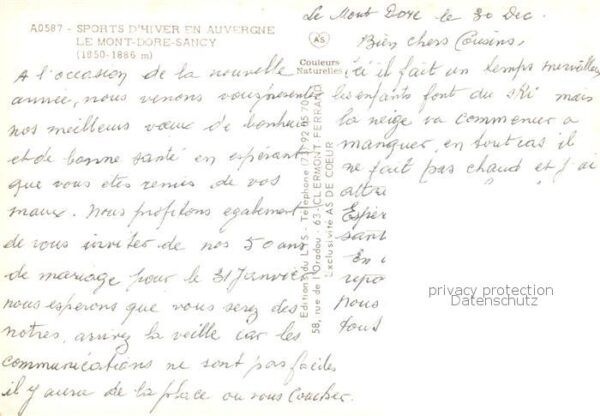 A0587 - SPORTS D'HIVER EN AUVERGNE
LE MONT-DORE-SANCY
(1850-1886 m)
A l'occasion de la nouvelle
année, nous venons vous présenter
nos meilleurs vœux de bonheur
et de bonne santé en espérant
que vous etes remis de vos
maux. Nous profitons egalement
de vous inviter de nos 50 ans
de mariage pour le 31 Janvier
nous esperons que vous serez des
notres, arrivez la veille car les
communications ne sont pas faciles
il y aura de la place ou vous coucher.
AS
Couleurs
Naturelles
Editions du LYS - Téléphone (73) 92.05.70
58, rue de l'Oradou - 63-CLERMONT-FERRAND
Exclusivité AS DE COEUR
Le Mont Dore le 30 Dec.
Bien chers Cousins,
Ici il fait un temps merveilleux
les enfants font du ski mais
la neige va commencer a
manquer, en tout cas il
ne fait pas chaud et j'ai
attra
Esper
sant
En
repo
nous
tous
privacy protection
Datenschutz